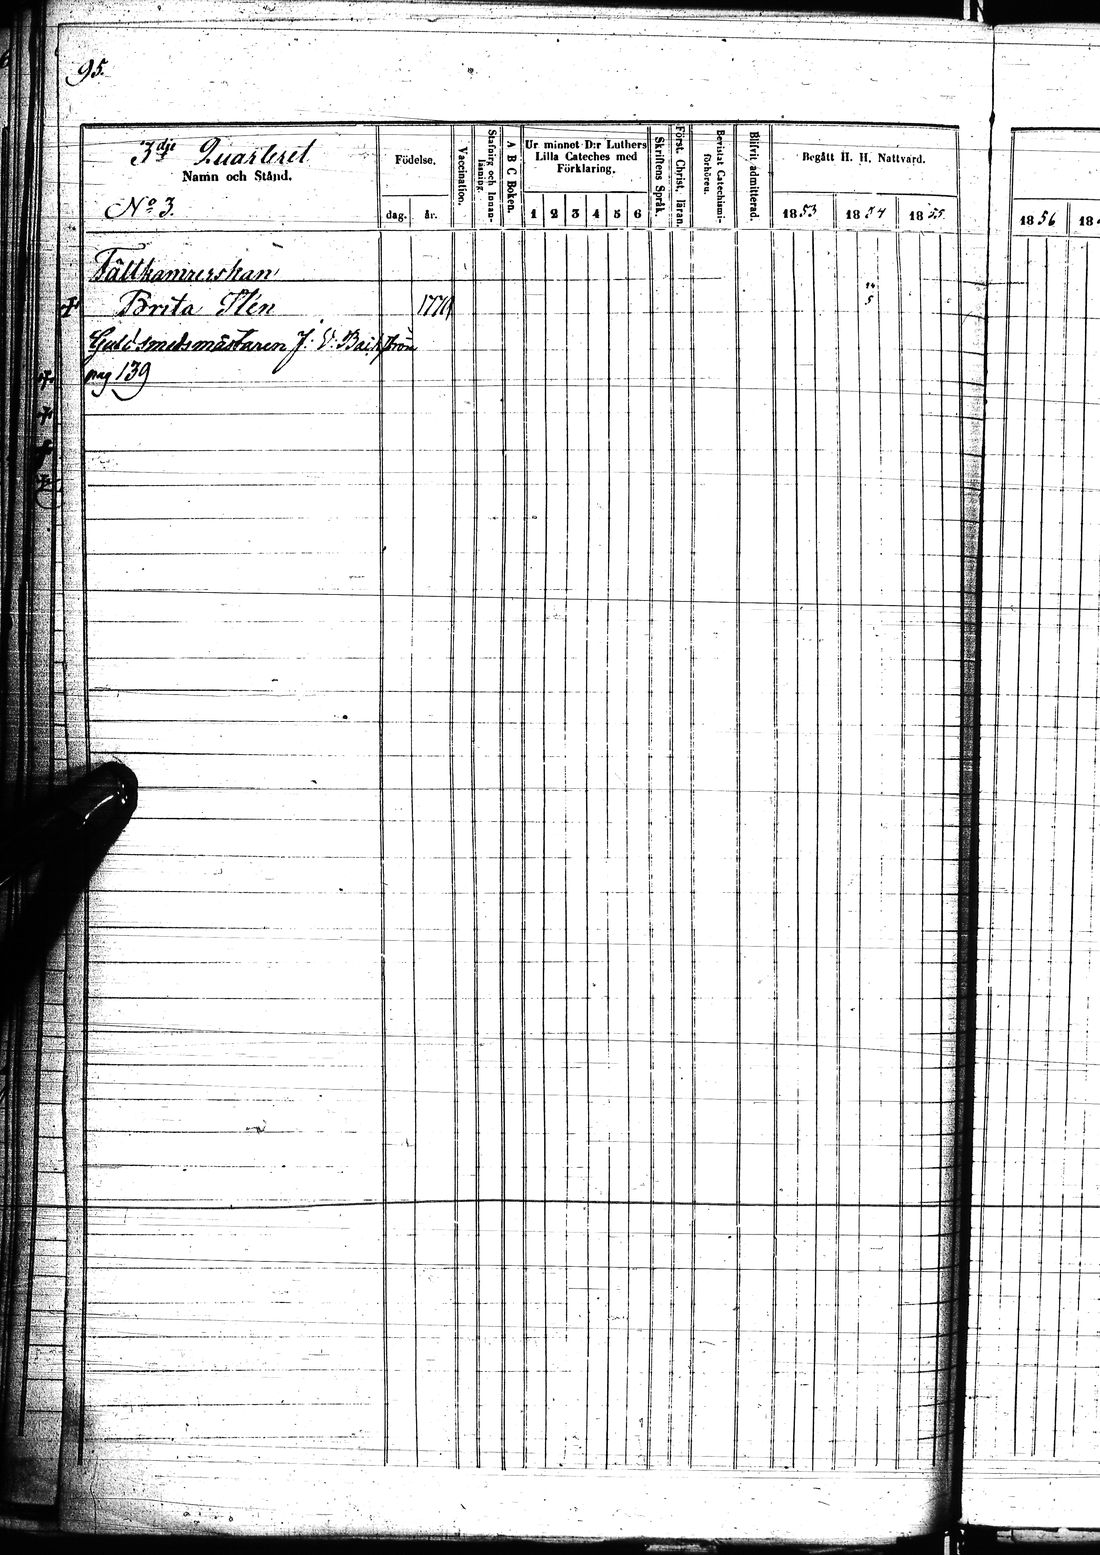 95.
3dje Quarteret
Namn och Stånd.
No 3.
Födelse.
dag. år.
Vaccination.
Stafning och Innan-
läsning.
A B C Boken.
Ur minnet D:r Luthers
Lilla Cateches med
Förklaring.
1 2 3 4 5 6
Skriftens Språk.
Först. Christ. läran.
Bevistat Catechismi-
förhören.
Blifvit admitterad.
Begått H. H. Nattvard.
1853 1854 1855
1856 18
Fältkamrerskan
Brita Flén
24
5
Guldsmedsmästaren J. V.
pag 139